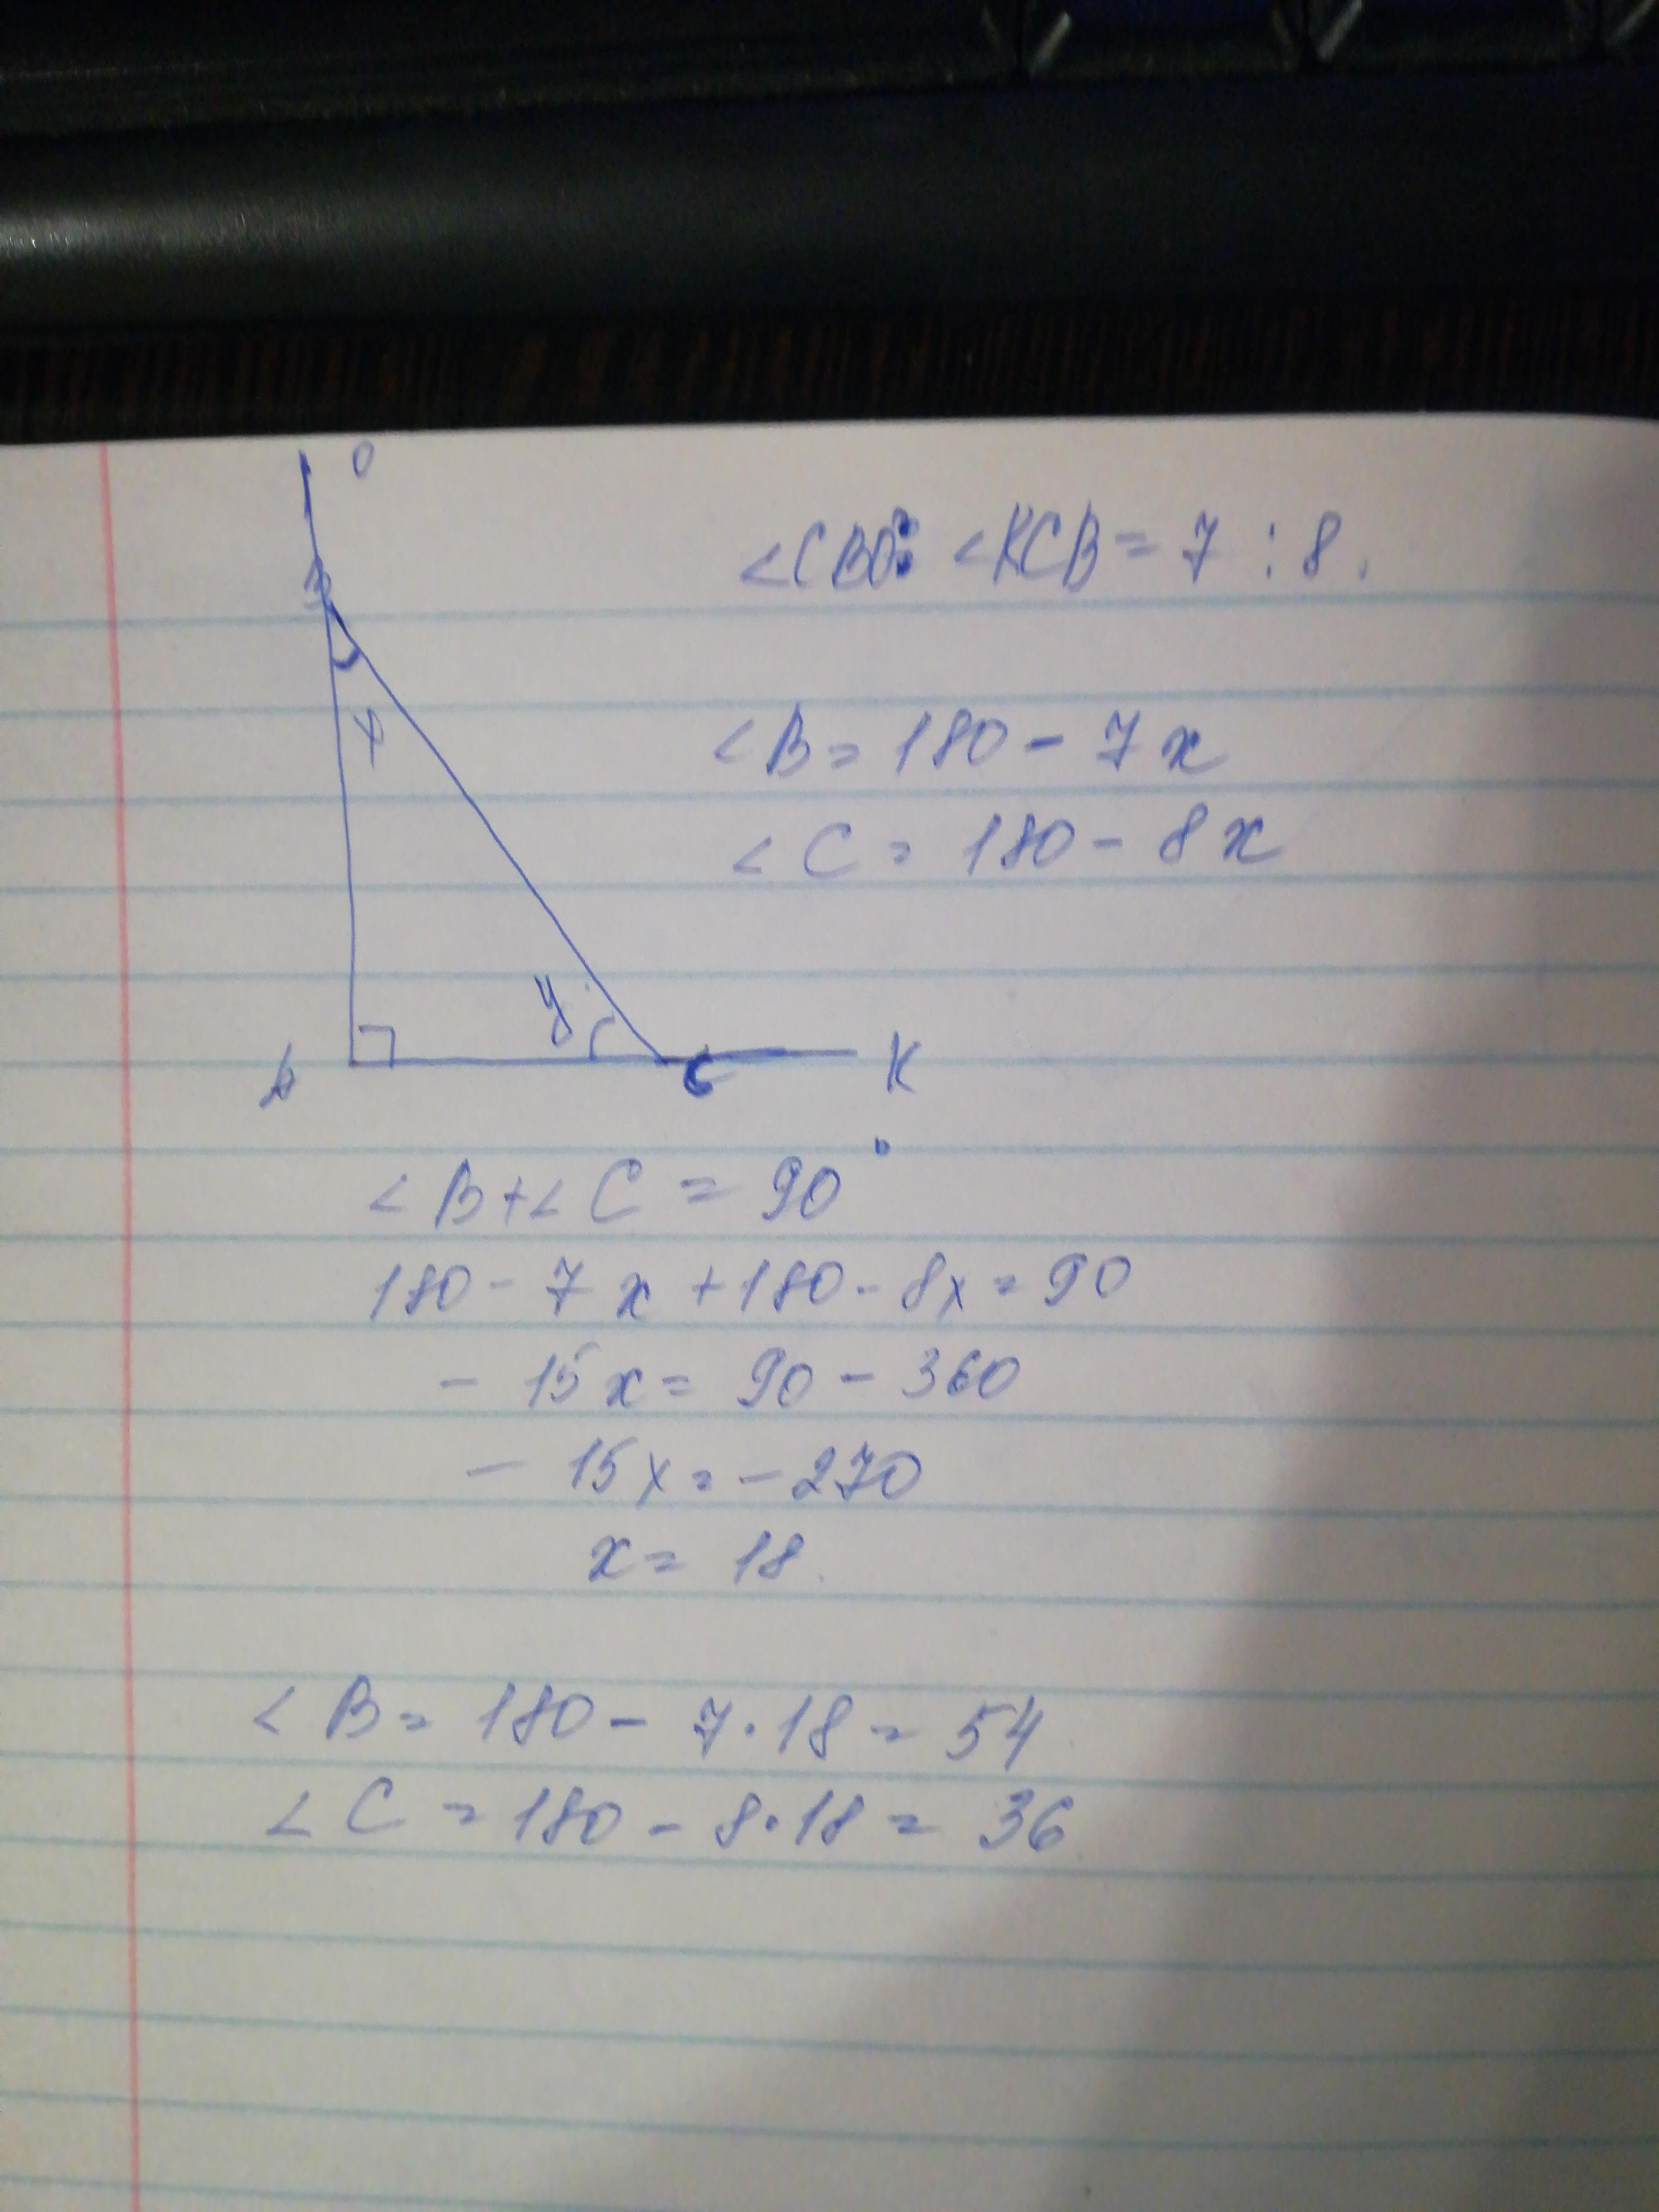 O
∠CBO: ∠KCB = 7 : 8.
B
x
∠B = 180 - 7x
∠C = 180 - 8x
y
A
C
K
∠B + ∠C = 90°
180 - 7x + 180 - 8x = 90
- 15x = 90 - 360
- 15x = - 270
x = 18.
∠B = 180 - 7·18 = 54
∠C = 180 - 8·18 = 36